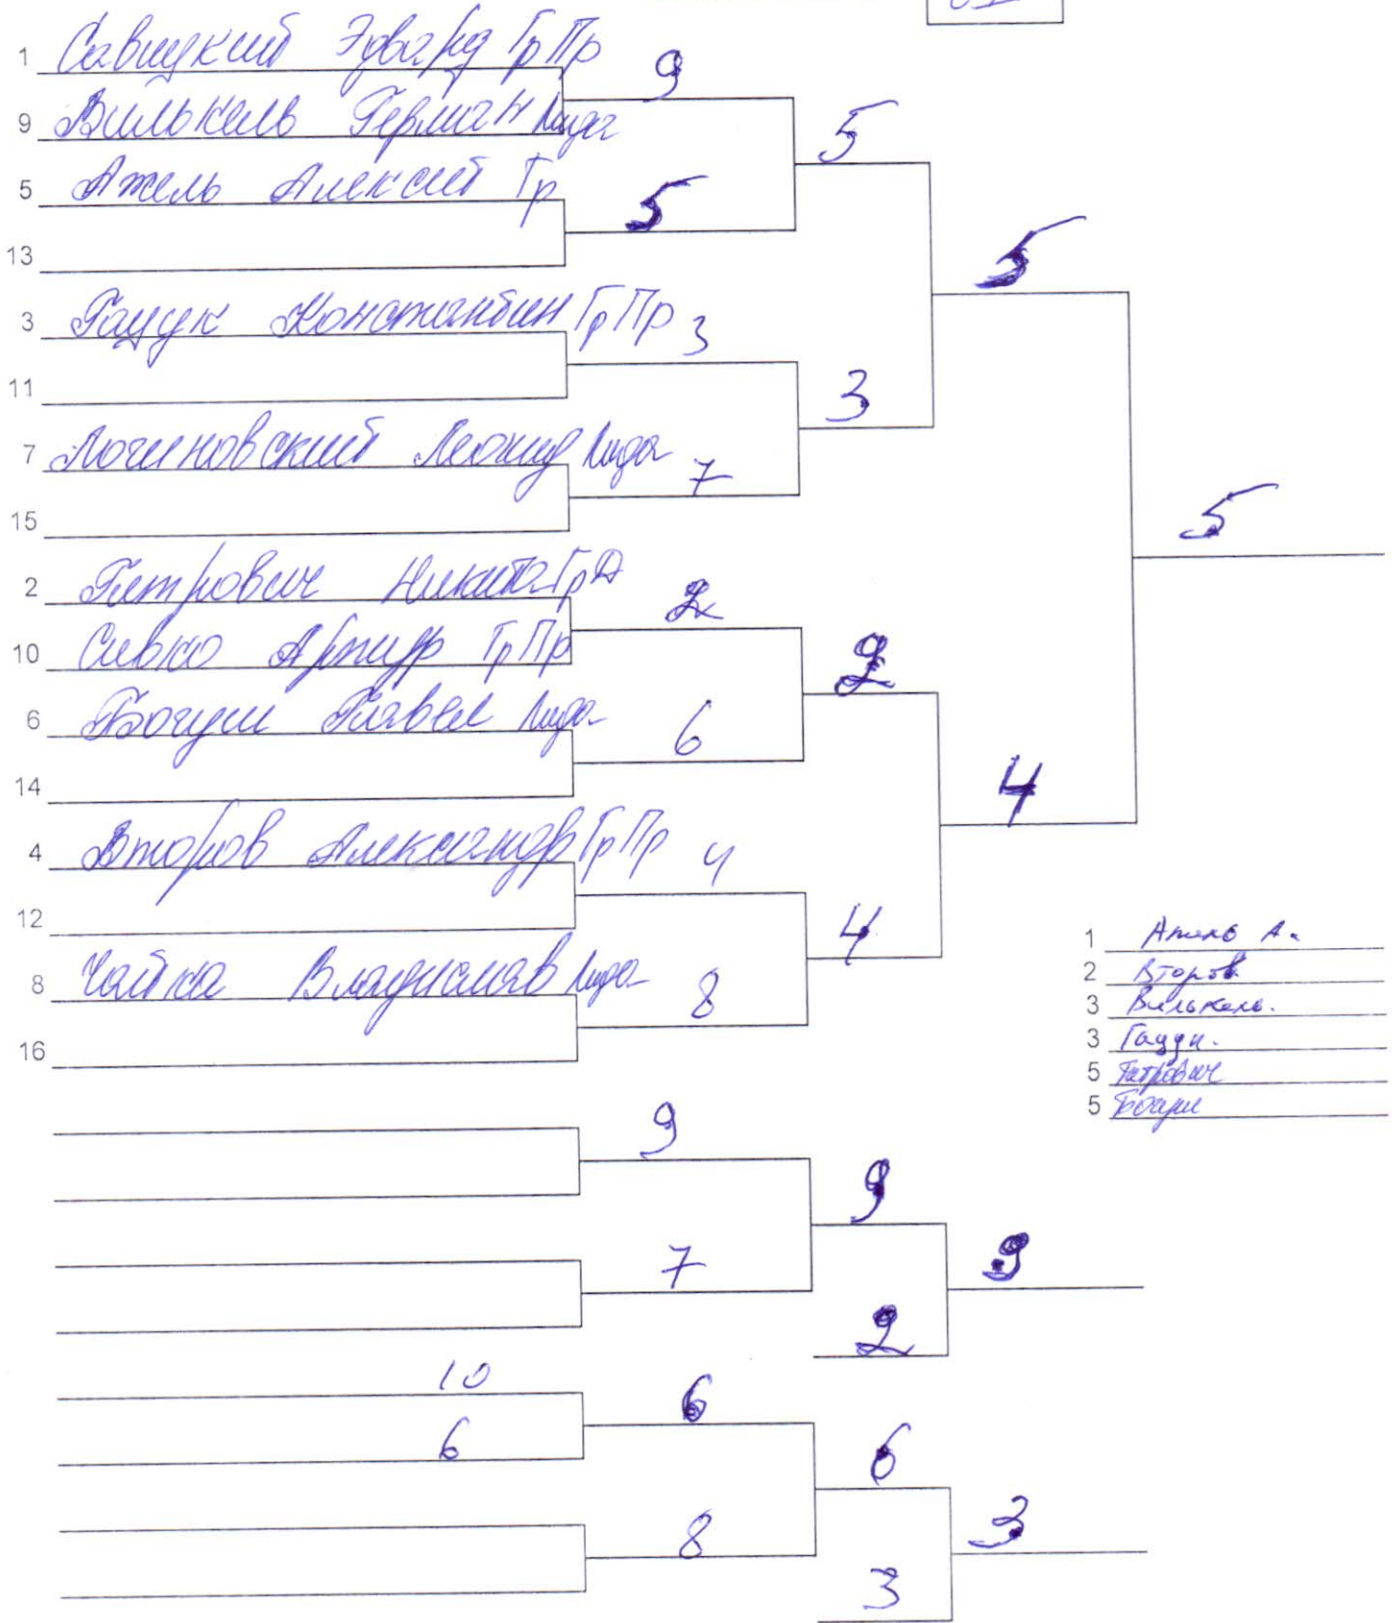 1 Савицкий Эдвард Гр Пр
9
9 Вилькель Герман Лида
5
5 Ажель Алексей Гр
5
13
5
3 Гацук Константин Гр Пр
3
11
3
7 Логиновский Леонид Лида
7
15
5
2 Петрович Никита Гр Д
2
10 Сивко Артур Гр Пр
2
6 Богуш Павел Лида
6
14
4
4 Второв Александр Гр Пр
4
12
4
8 Чайка Владислав Лида
8
16
1 Ажель А.
2 Второв
3 Вилькель.
3 Гацук.
5 Петрович
5 Богуш
9
9
7
9
2
10
6
6
6
8
3
3